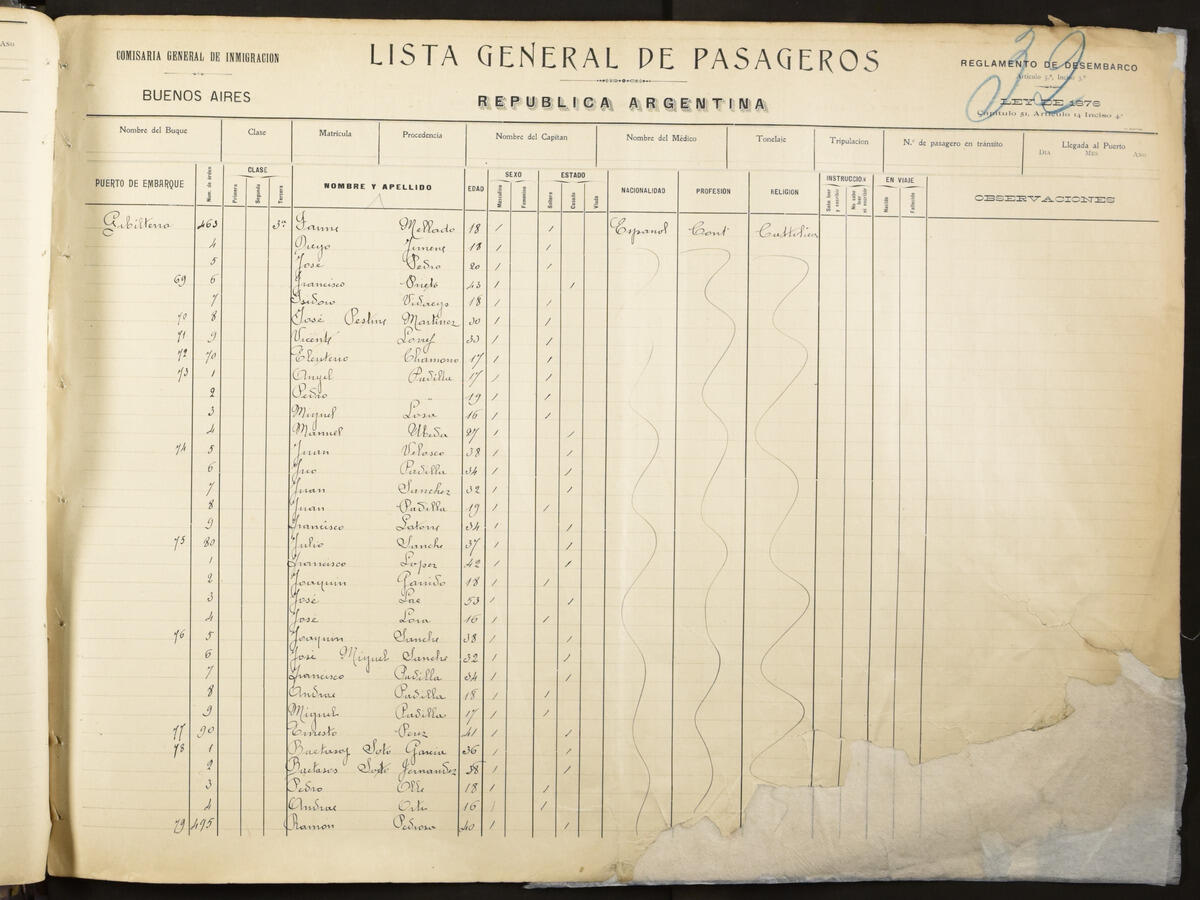 Año
COMISARIA GENERAL DE INMIGRACION
BUENOS AIRES
LISTA GENERAL DE PASAGEROS
REPUBLICA ARGENTINA
32
REGLAMENTO DE DESEMBARCO
Artículo 5.º, Inciso 3.º
LEY DE 1876
Capítulo 51, Artículo 14 Inciso 4º
Nombre del Buque Clase Matrícula Procedencia Nombre del Capitan Nombre del Médico Tonelaje Tripulacion N.º de pasagero en tránsito Llegada al Puerto
DIA MES AÑO
PUERTO DE EMBARQUE Núm. de órden CLASE Primera Segunda Tercera NOMBRE Y APELLIDO EDAD SEXO Masculino Femenino ESTADO Soltero Casado Viudo NACIONALIDAD PROFESION RELIGION INSTRUCCION Sabe leer y escribir No sabe leer ni escribir EN VIAJE Nacido Fallecido OBSERVACIONES
463 3ª Mellado 18 / / Espanol Cont Cattolica
4 Diego Jimene 18 / /
5 José Pedro 20 / /
69 6 Francisco Prieto 43 / /
7 Isidoro 18 / /
70 8 José Martinez 30 / /
71 9 Vicente 33 / /
72 70 Eleuterio Chamono 17 / /
73 1 Angel Padilla 17 / /
2 Pedro " 19 / /
3 Miguel Losa 16 / /
4 Manuel Ubeda 27 / /
74 5 Juan Velosco 38 / /
6 Padilla 34 / /
7 Juan Sanchez 32 / /
8 Juan Padilla 19 / /
9 Francisco Latorre 34 / /
75 80 Julio Sanche 37 / /
1 Francisco Lopez 42 / /
2 Joaquin Garrido 18 / /
3 José 53 / /
4 José Lora 16 / /
76 5 Joaquin Sanche 38 / /
6 José Miguel Sanche 32 / /
7 Francisco Padilla 34 / /
8 Andrae Padilla 18 / /
9 Miguel Padilla 17 / /
77 90 Ernesto Perez 41 / /
78 1 Soto Garcia 36 / /
2 Soto Fernandez 38 / /
3 Pedro 18 / /
4 Andrae Orti 16 / /
79 495 Ramon Pedroso 40 / /